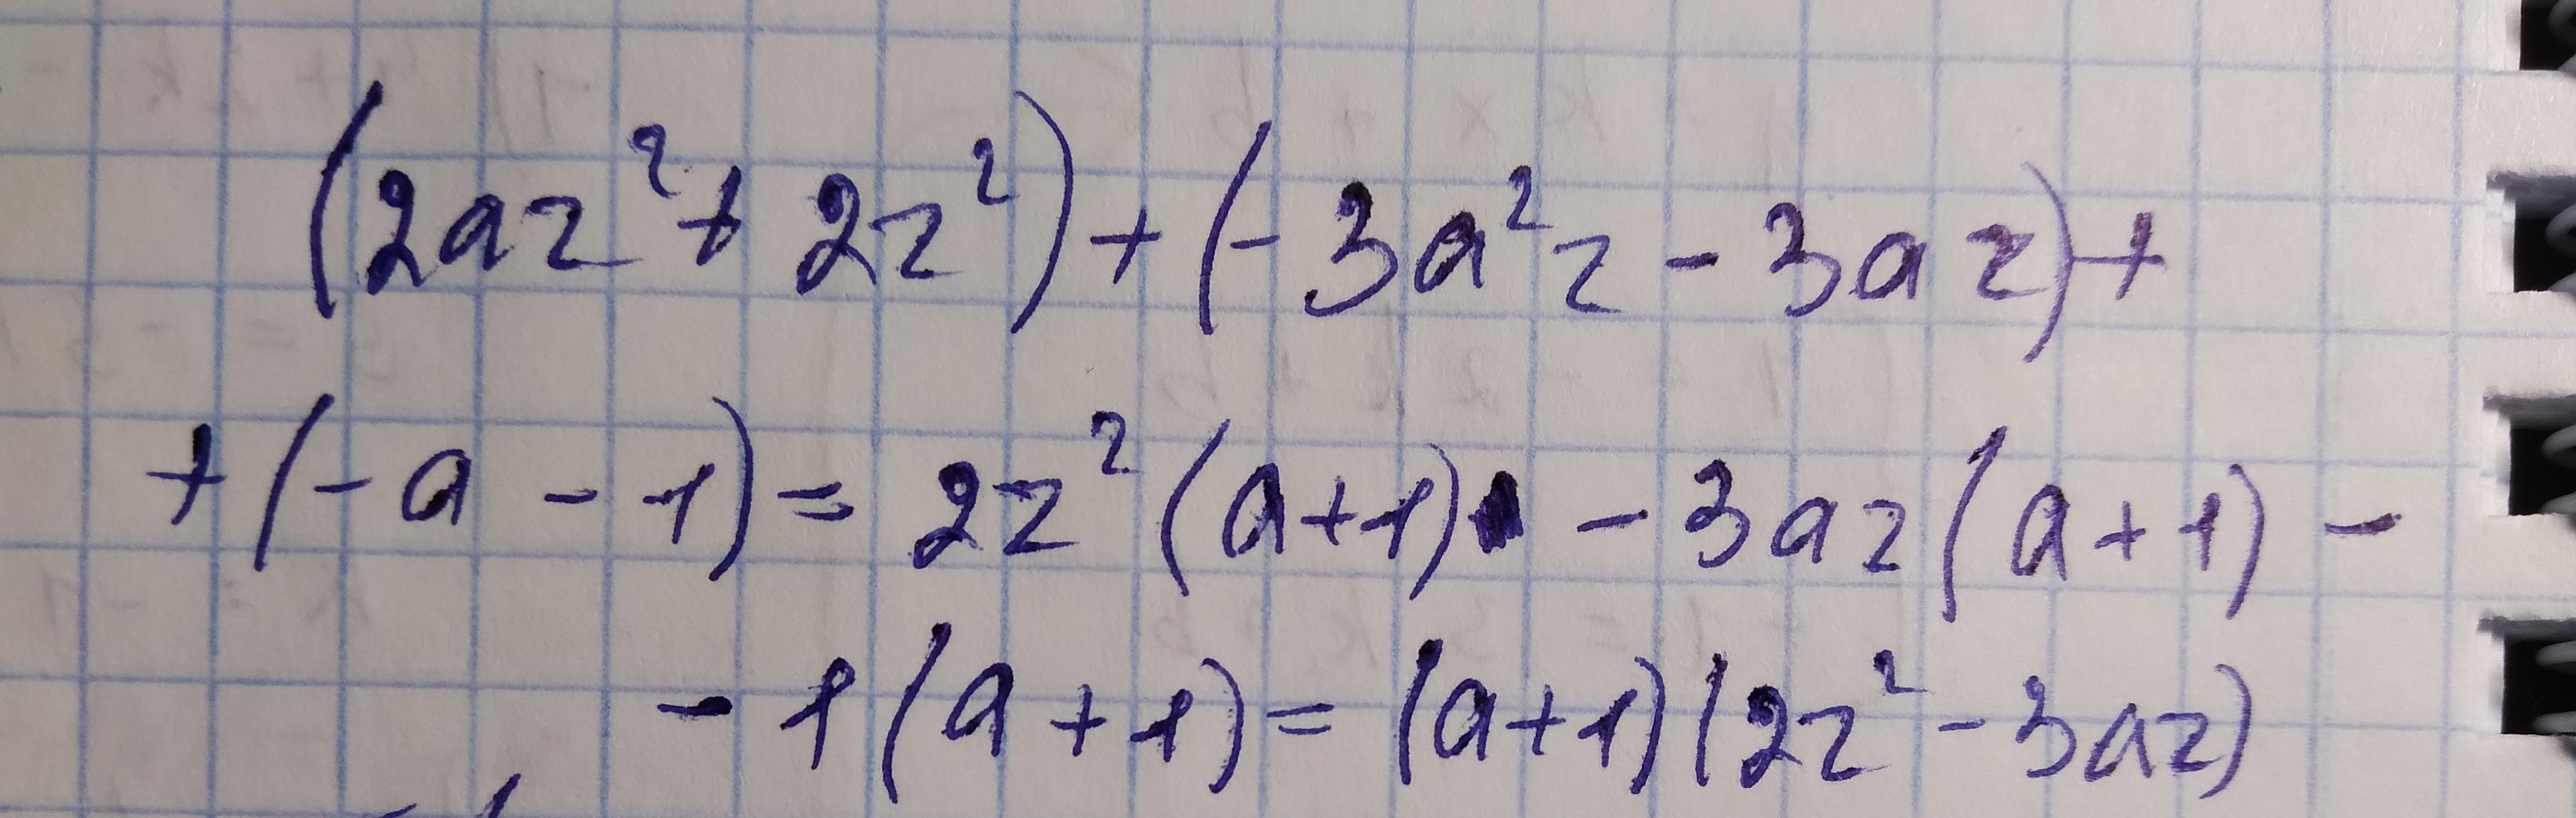 (2az² + 2z²) + (-3a²z - 3az) +
+ (-a - 1) = 2z²(a+1) - 3az(a+1) -
- 1(a+1) = (a+1)(2z² - 3az)